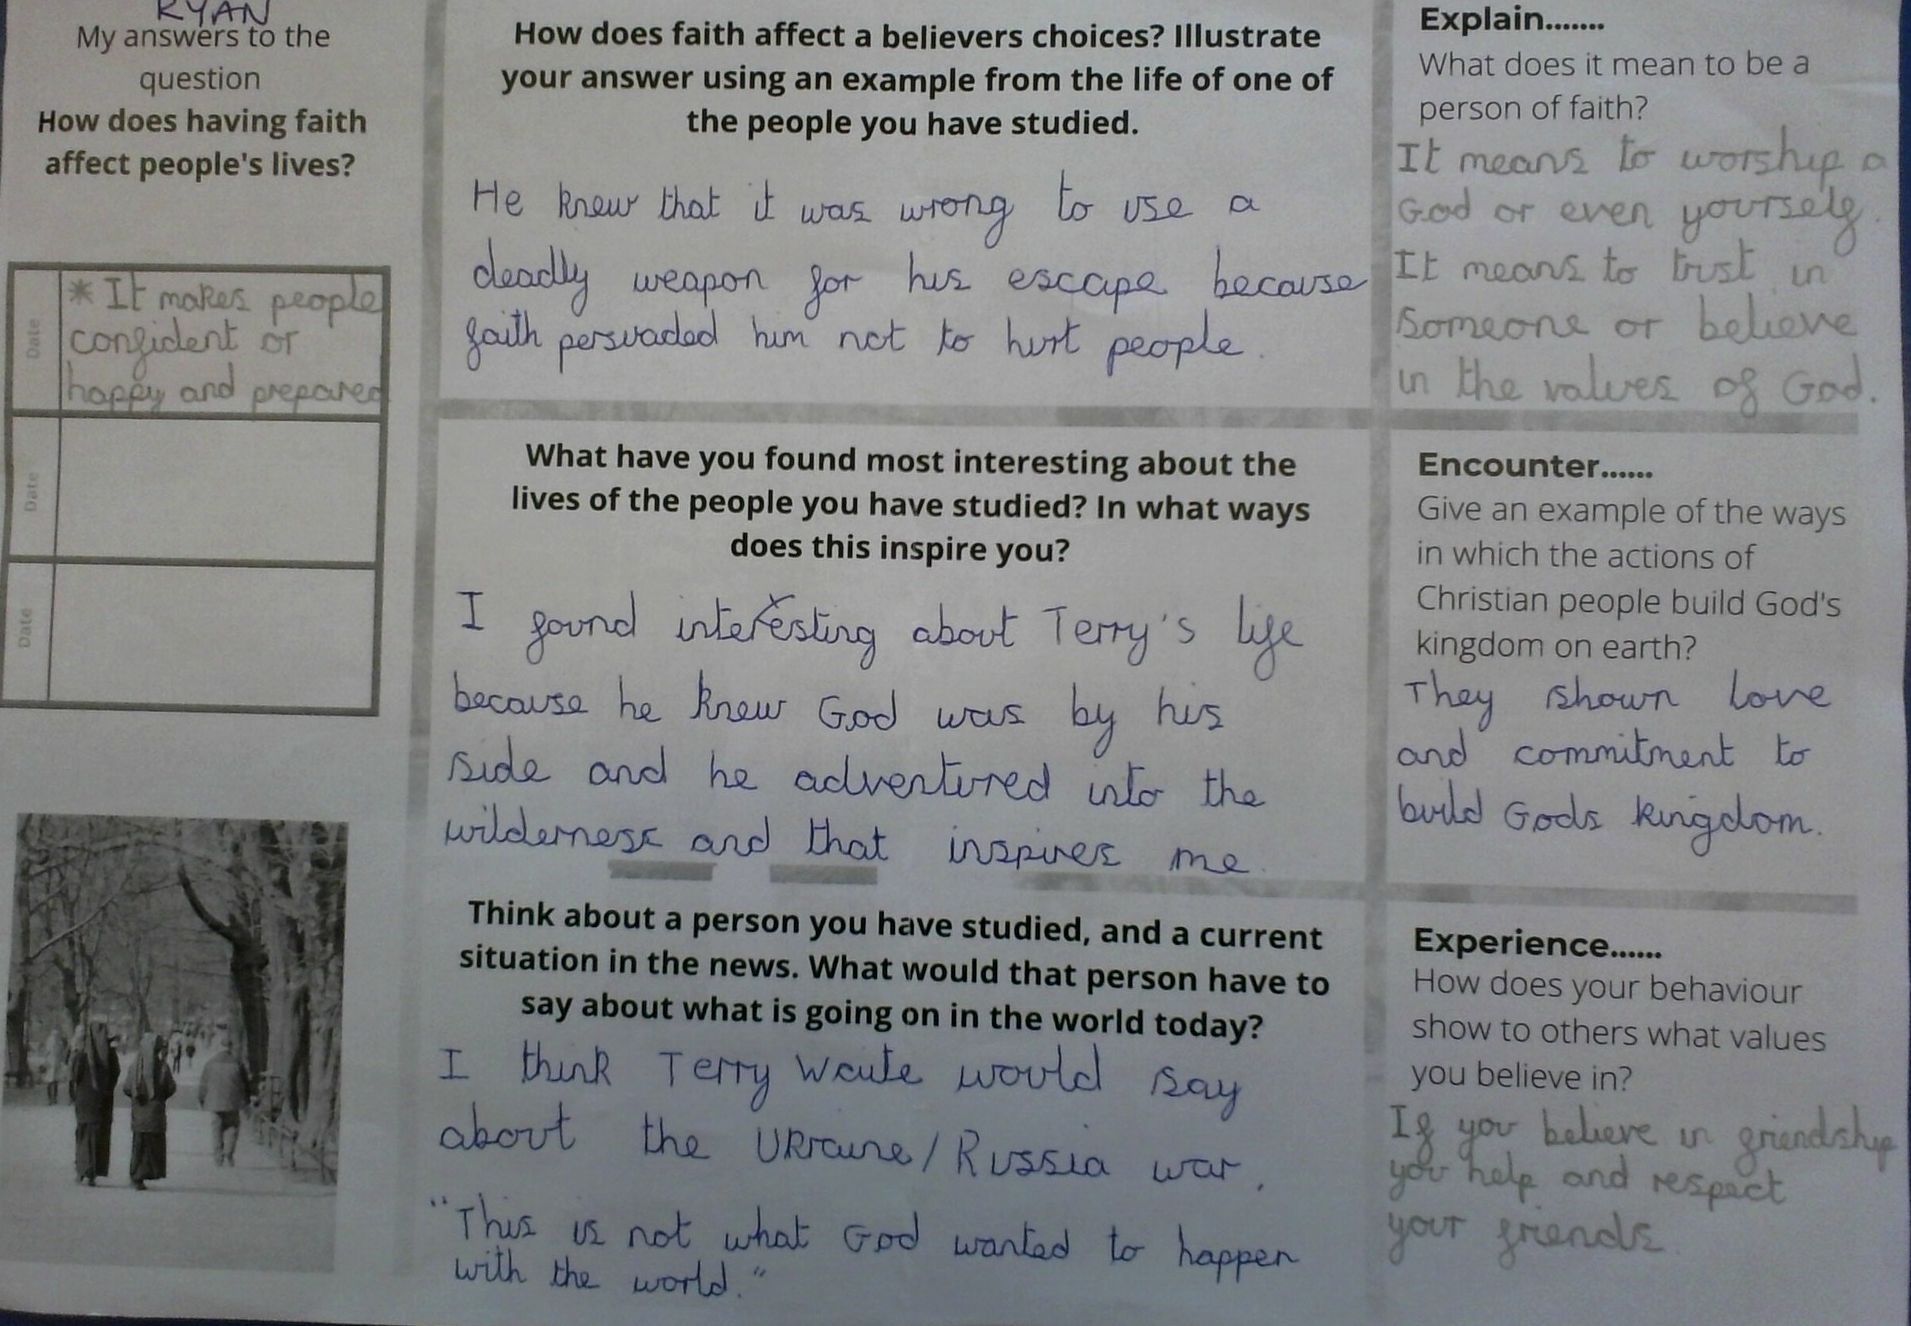 RYAN
My answers to the
question
How does having faith
affect people's lives?
Date
* It makes people
confident or
happy and prepared
Date
Date
How does faith affect a believers choices? Illustrate
your answer using an example from the life of one of
the people you have studied.
He knew that it was wrong to use a
deadly weapon for his escape because
faith persuaded him not to hurt people.
What have you found most interesting about the
lives of the people you have studied? In what ways
does this inspire you?
I found interesting about Terry's life
because he knew God was by his
side and he adventured into the
wilderness and that inspires me.
Think about a person you have studied, and a current
situation in the news. What would that person have to
say about what is going on in the world today?
I think Terry Waite would say
about the Ukraine/Russia war,
"This is not what God wanted to happen
with the world."
Explain.......
What does it mean to be a
person of faith?
It means to worship a
God or even yourself.
It means to trust in
someone or believe
in the values of God.
Encounter......
Give an example of the ways
in which the actions of
Christian people build God's
kingdom on earth?
They shown love
and commitment to
build Gods kingdom.
Experience......
How does your behaviour
show to others what values
you believe in?
If you believe in friendship
you help and respect
your friends.